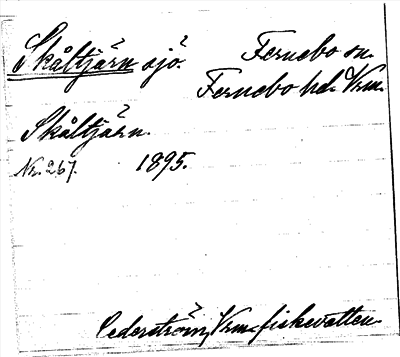 Skåltjärn sjö. Fernebo sn.
Fernebo hd. Vrm.
Skåltjärn.
Nr. 267. 1895.
Cederström, Vrm. fiskevatten.